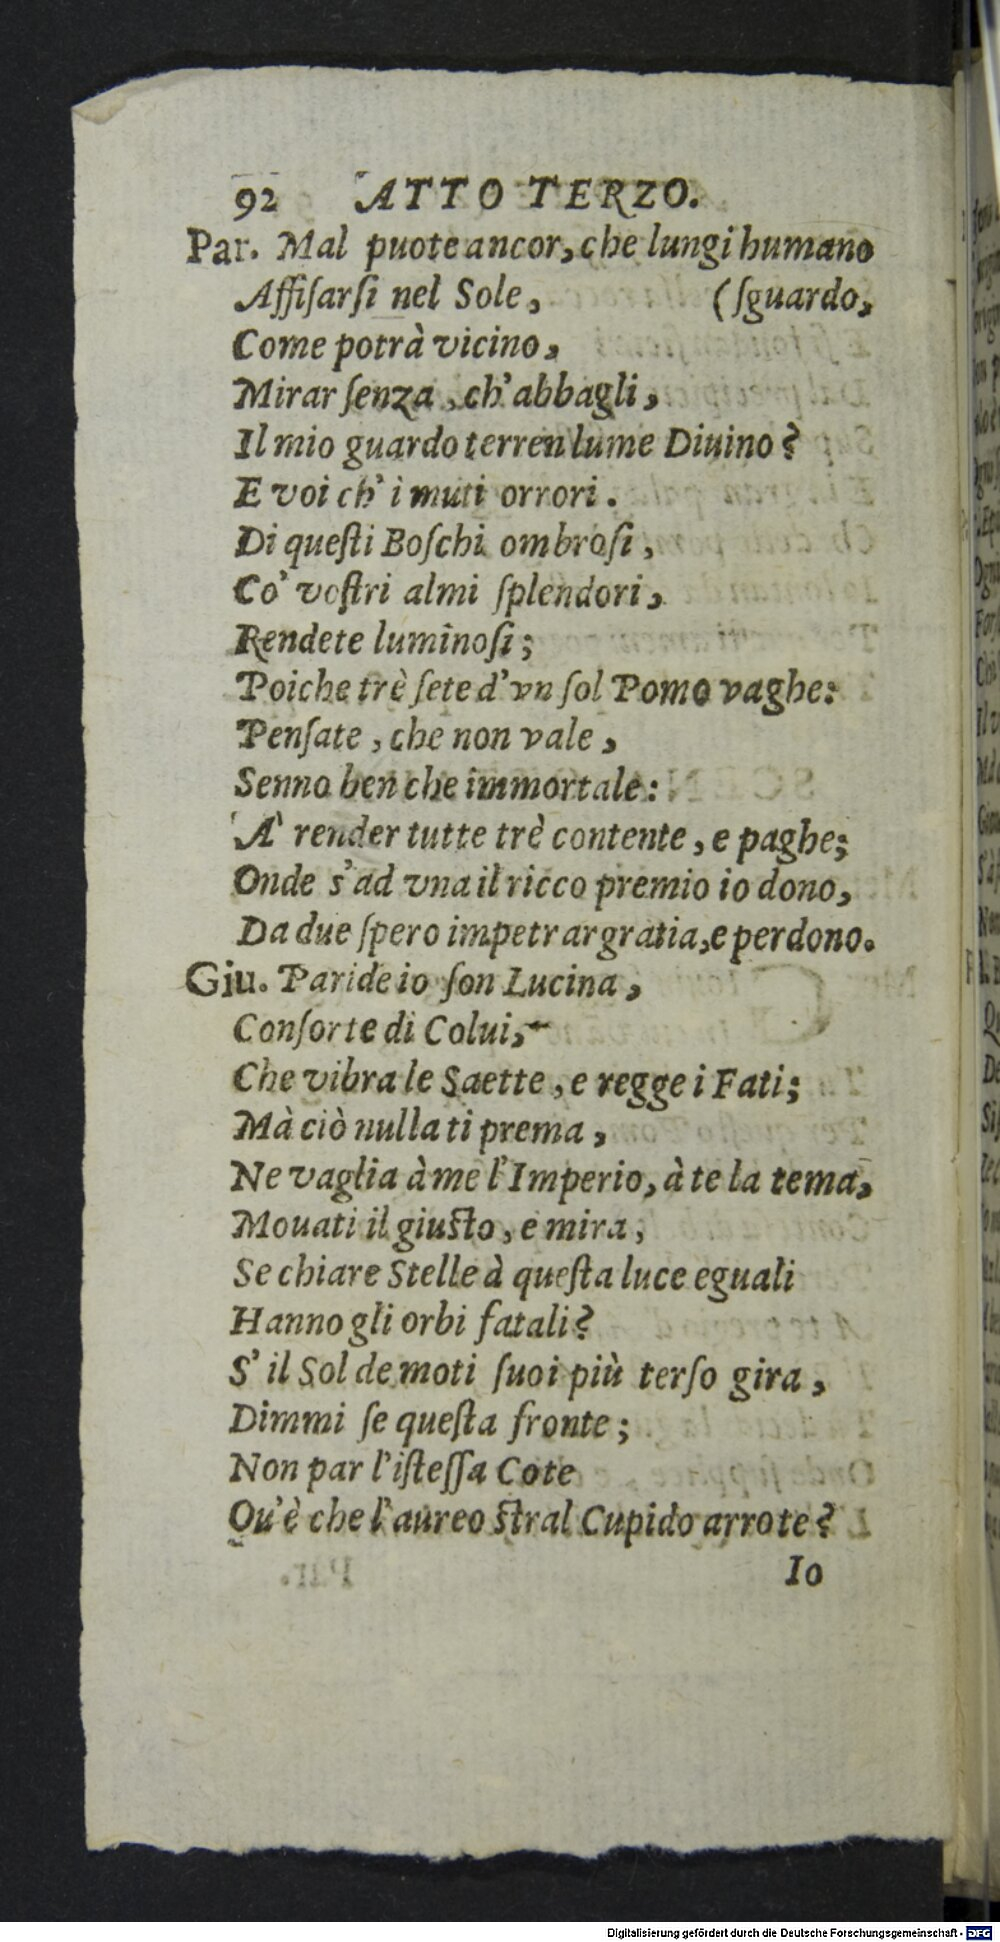 92 ATTO TERZO.
Par. Mal puote ancor, che lungi humano
Affiſarſi nel Sole, (ſguardo,
Come potrà vicino,
Mirar ſenza, ch' abbagli,
Il mio guardo terren lume Diuino?
E voi ch' i muti orrori.
Di queſti Boſchi ombroſi,
Co' voſtri almi ſplendori,
Rendete luminoſi;
Poiche trè ſete d'vn ſol Pomo vaghe:
Penſate, che non vale,
Senno ben che immortale:
A' render tutte trè contente, e paghe;
Onde s'ad vna il ricco premio io dono,
Da due ſpero impetrar gratia, e perdono.
Giu. Paride io ſon Lucina,
Conſorte di Colui,
Che vibra le Saette, e regge i Fati;
Mà ciò nulla ti prema,
Ne vaglia à me l'Imperio, à te la tema,
Mouati il giuſto, e mira,
Se chiare Stelle à queſta luce eguali
Hanno gli orbi fatali?
S' il Sol de moti ſuoi più terſo gira,
Dimmi ſe queſta fronte;
Non par l'iſteſſa Cote
Ou'è che l'aureo ſtral Cupido arrote?
Io
Digitalisierung gefördert durch die Deutsche Forschungsgemeinschaft - DFG